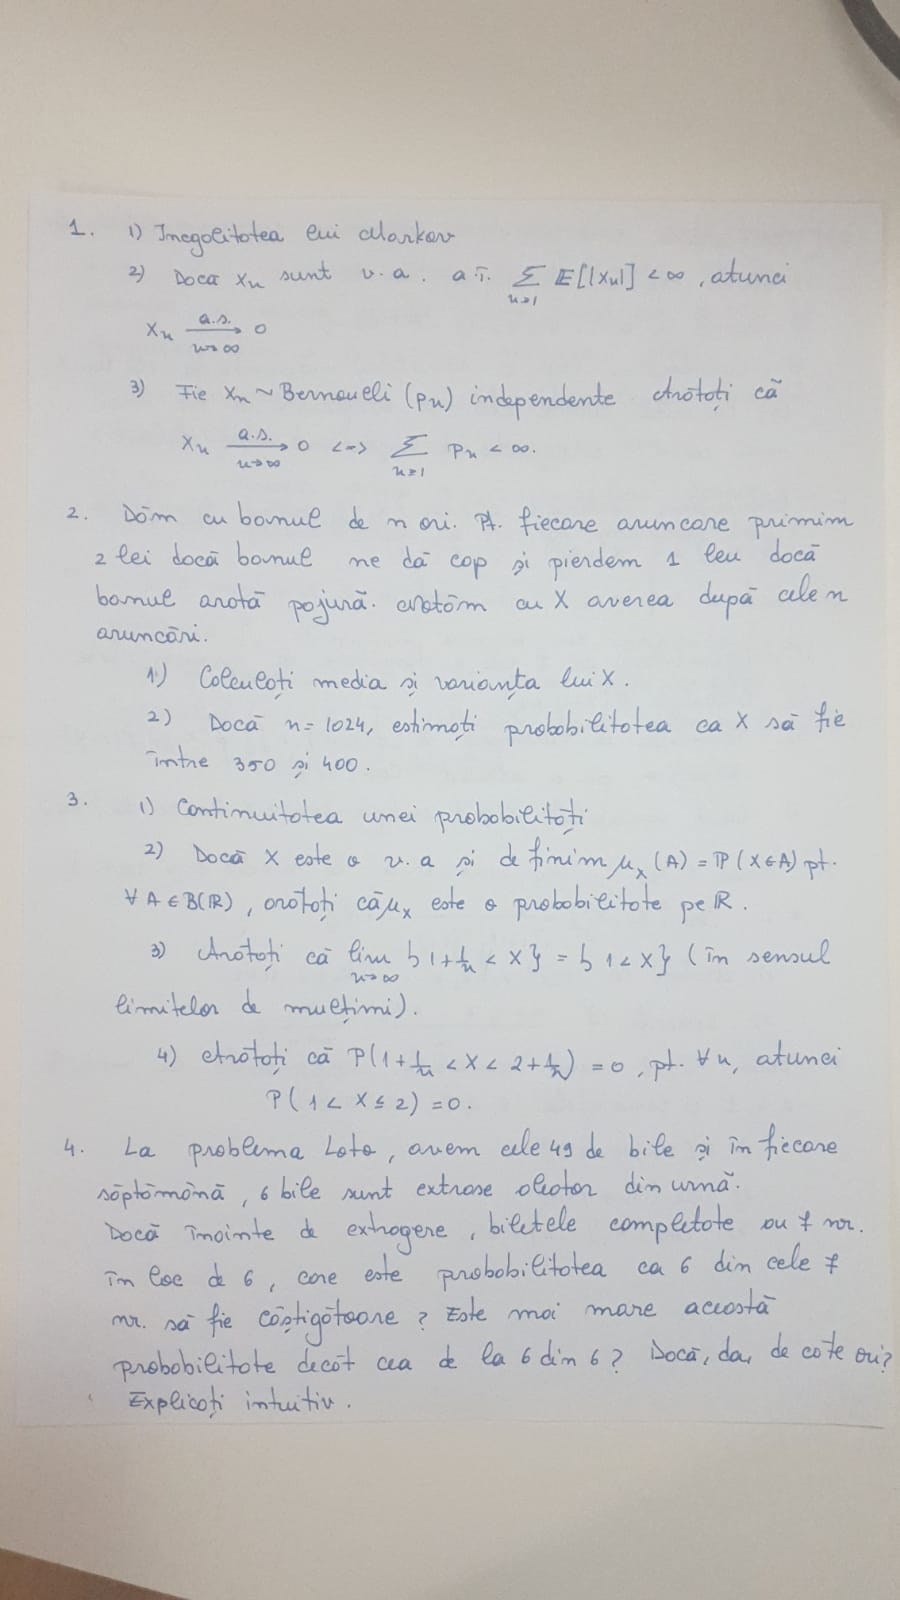 1. 1) Inegalitatea lui Markov
2) Dacă Xn sunt v.a. a.î. Σ n≥1 E[|Xn|] < ∞, atunci
Xn a.s.→ n→∞ 0
3) Fie Xn ~ Bernoulli (pn) independente Arătați că
Xn a.s.→ n→∞ 0 <=> Σ n≥1 pn < ∞.
2. Dăm cu banul de n ori. Pt. fiecare aruncare primim
2 lei dacă banul ne dă cap și pierdem 1 leu dacă
banul arată pajură. Notăm cu X averea după cele n
aruncări.
1) Calculați media și varianța lui X.
2) Dacă n = 1024, estimați probabilitatea ca X să fie
între 350 și 400.
3. 1) Continuitatea unei probabilități
2) Dacă X este o v.a și definim μx(A) = P(X∈A) pt.
∀ A ∈ B(R), arătați că μx este o probabilitate pe R.
3) Arătați că lim n→∞ {1+1/n < X} = {1 < X} (în sensul
limitelor de mulțimi).
4) Arătați că P(1+1/n < X < 2+1/n) = 0, pt. ∀n, atunci
P(1 < X ≤ 2) = 0.
4. La problema Loto, avem cele 49 de bile și în fiecare
săptămână, 6 bile sunt extrase aleator din urnă.
Dacă înainte de extragere, biletele completate au 7 nr.
în loc de 6, care este probabilitatea ca 6 din cele 7
nr. să fie câștigătoare? Este mai mare această
probabilitate decât cea de la 6 din 6? Dacă, da, de câte ori?
Explicați intuitiv.